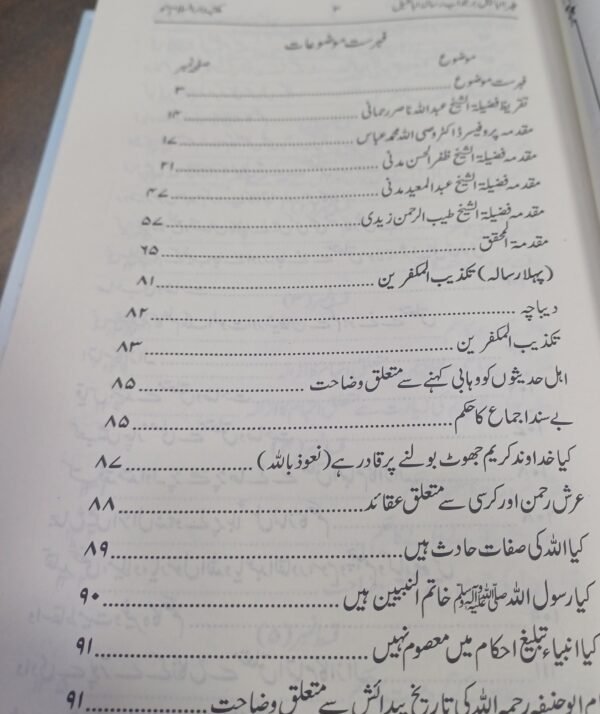 ۳
فہرست موضوعات
موضوع صفحہ نمبر
فہرست موضوع ۳
تقریظ فضیلۃ الشیخ عبداللہ ناصر رحمانی ۱۴
مقدمہ پروفیسر ڈاکٹر وصی اللہ محمد عباس ۱۷
مقدمہ فضیلۃ الشیخ ظفر الحسن مدنی ۲۱
مقدمہ فضیلۃ الشیخ عبدالمعید مدنی ۴۷
مقدمہ فضیلۃ الشیخ طیب الرحمن زیدی ۵۷
مقدمۃ المحقق ۶۵
(پہلا رسالہ) تکذیب المکفرین ۸۱
دیباچہ ۸۲
تکذیب المکفرین ۸۳
اہل حدیثوں کو وہابی کہنے سے متعلق وضاحت ۸۵
بے سند اجماع کا حکم ۸۵
کیا خداوند کریم جھوٹ بولنے پر قادر ہے (نعوذ باللہ) ۸۷
عرش رحمن اور کرسی سے متعلق عقائد ۸۸
کیا اللہ کی صفات حادث ہیں ۸۹
کیا رسول اللہ ﷺ خاتم النبیین ہیں ۹۰
کیا انبیاء تبلیغ احکام میں معصوم نہیں ۹۱
ابو حنیفہ رحمہ اللہ کی تاریخ پیدائش سے متعلق وضاحت ۹۱